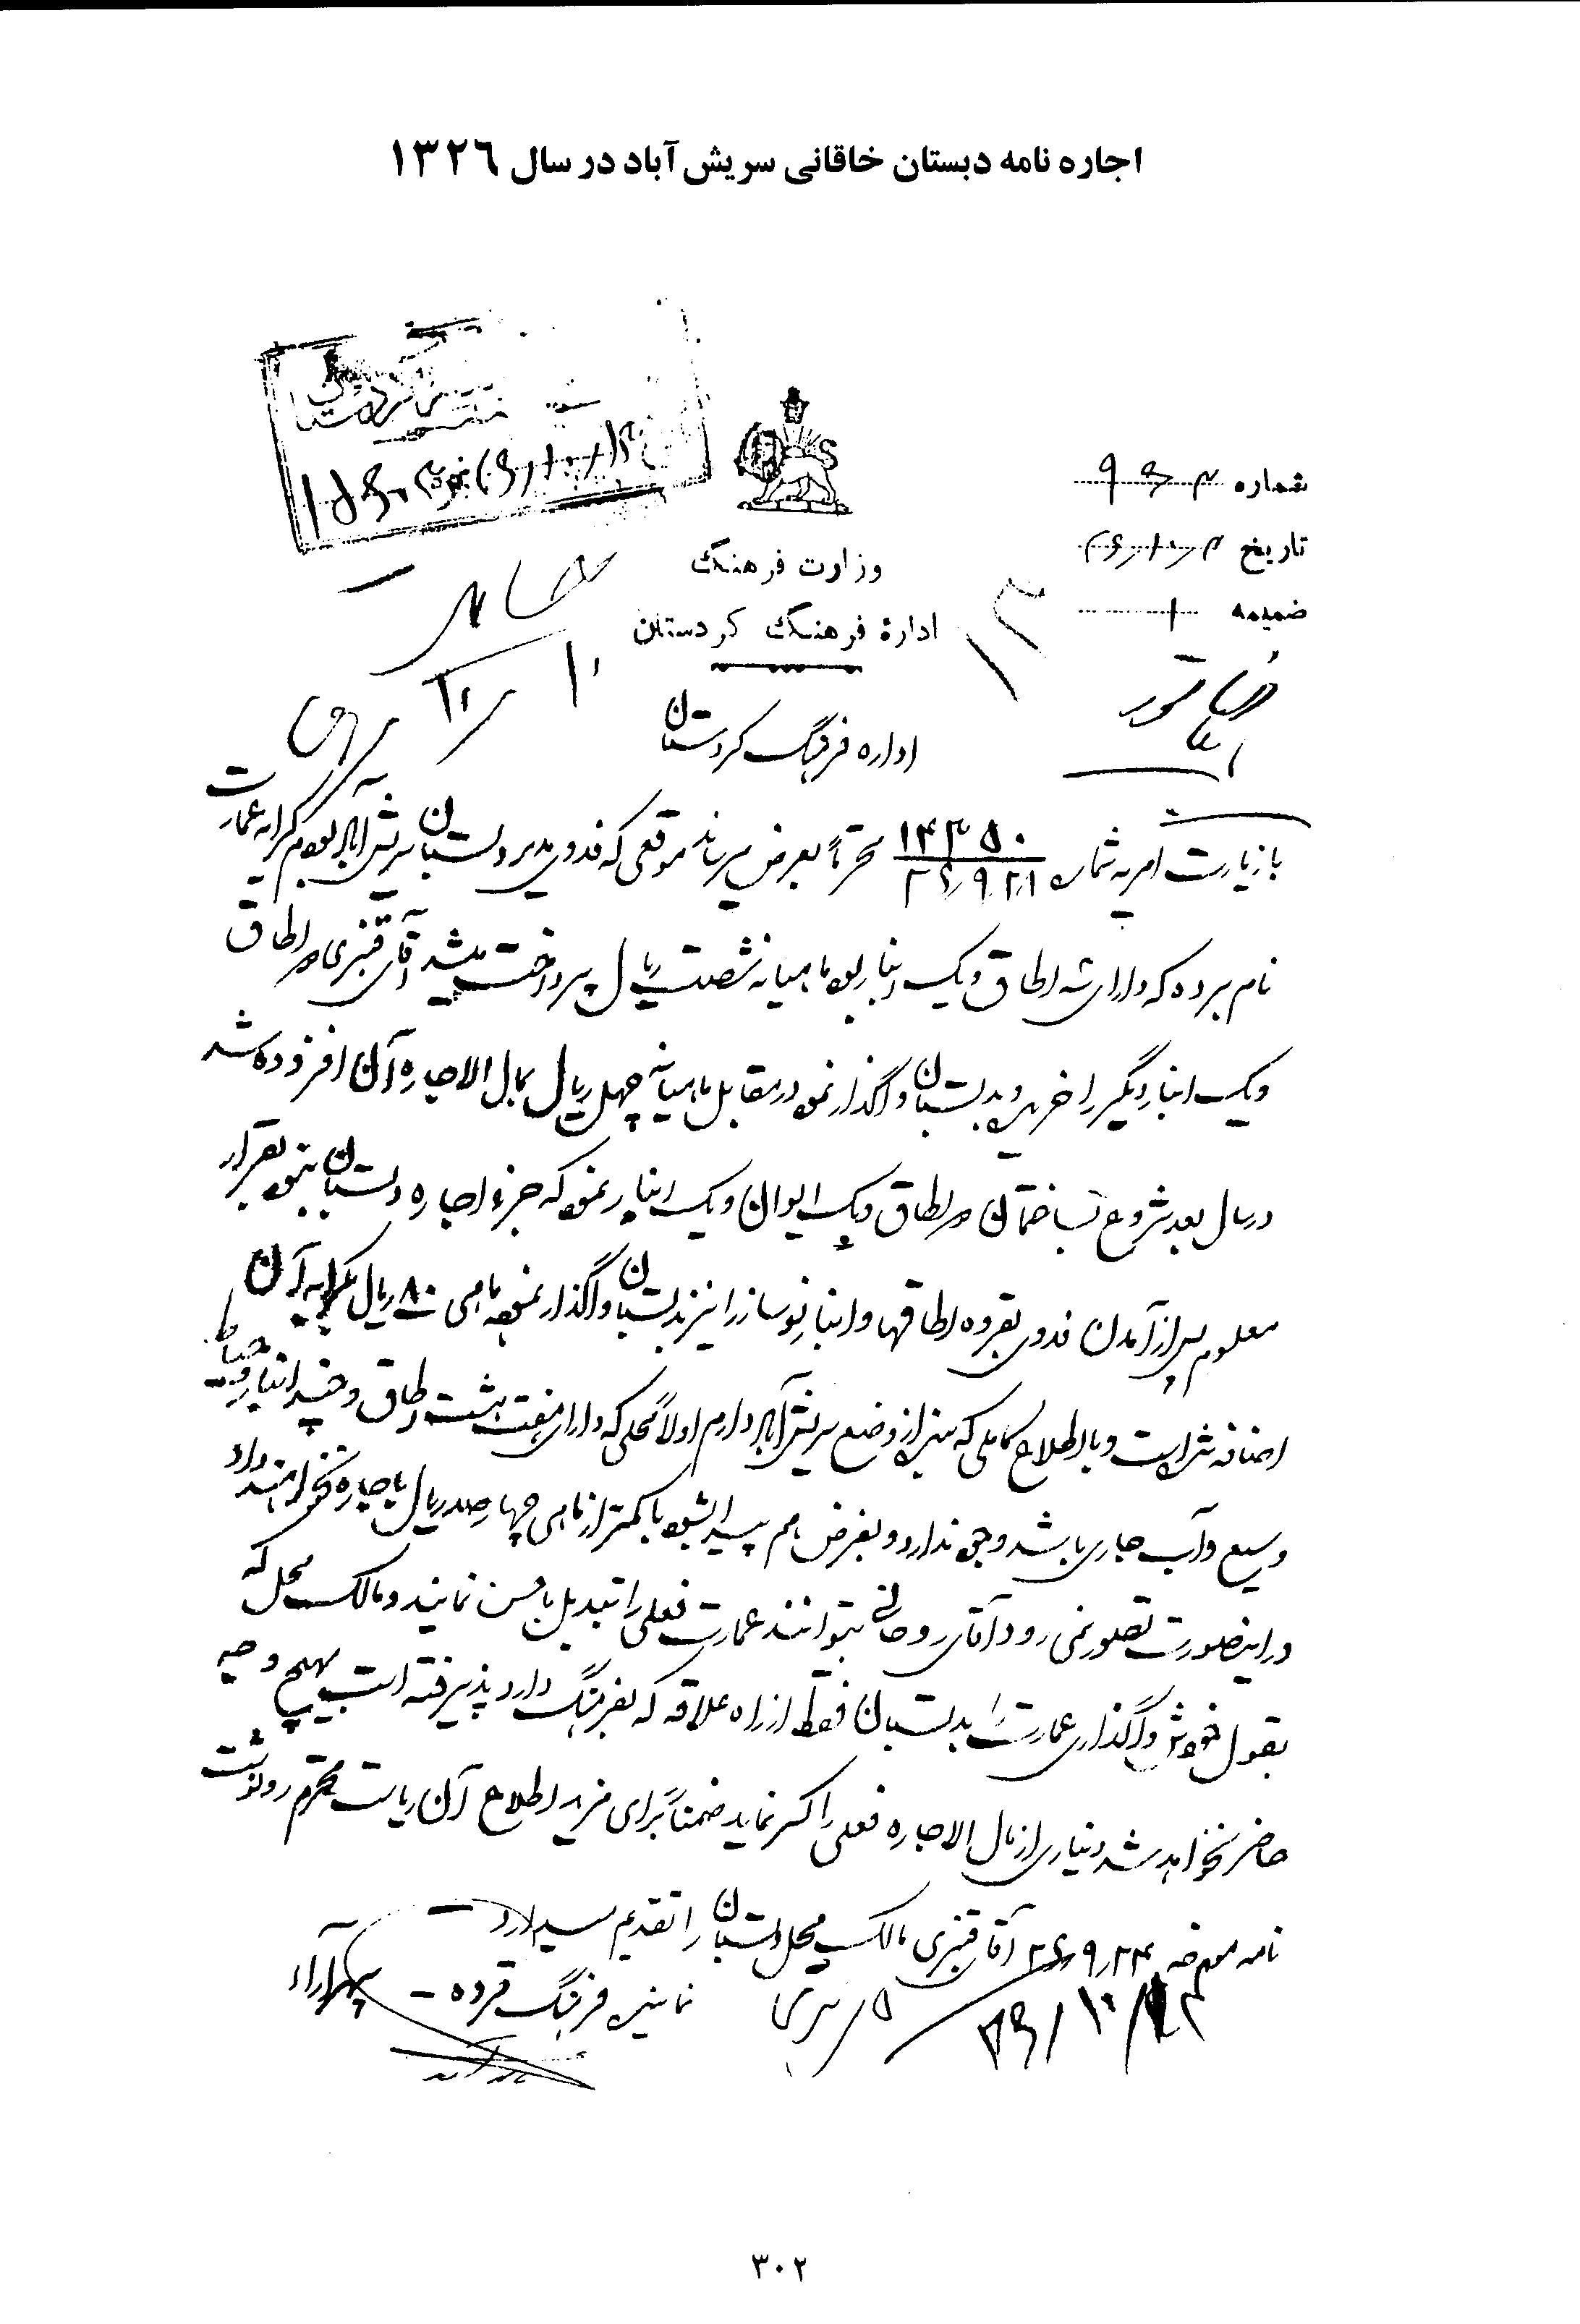 اجاره نامه دبستان خاقانی سریش آباد در سال ۱۳۲۶
شماره ۹۶۳
تاریخ ۲۶/۱۰/۳
ضمیمه ۱
وزارت فرهنگ
ادارهٔ فرهنگ کردستان
اداره فرهنگ کردستان
با زیارت امریه شماره ۱۴۳۵۰ / ۲۶/۹/۲۱ محترماً بعرض میرساند موقعی که فدوی مدیر دبستان سریش آباد بودم کرایه عمارت
نام برده که دارای سه اطاق و یک انبار بود ماهیانه شصت ریال پرداخت میشد آقای قنبری دو اطاق
و یک انبار دیگر را خریده و بدبستان واگذار نمود در مقابل ماهیانه چهل ریال بمال الاجاره آن افزوده شد
در سال بعد شروع بساختمان دو اطاق و یک ایوان و یک انبار نمود که جزء اجاره دبستان نبود بقرار
معلوم پس از آمدن فدوی بقروه اطاقها و انبار نوساز را نیز بدبستان واگذار نموده ماهی ۸۰ ریال بکرایه آن
اضافه شده است و با اطلاع کاملی که بنده از وضع سریش آباد دارم اولاً محلی که دارای هفت هشت اطاق و چند انبار و حیاط
وسیع و آب جاری باشد وجود ندارد و بفرض هم پیدا بشود با کمتر از ماهی چهارصد ریال باجاره نخواهند داد
در اینصورت تصور نمی رود آقای روحانی بتوانند عمارت فعلی را تبدیل باحسن نمایند و مالک محل که
بقول خودش واگذاری عمارت را بدبستان فقط از راه علاقه که بفرهنگ دارد پذیرفته است بهیچ وجه
حاضر نخواهد شد دیناری از مال الاجاره فعلی را کسر نماید ضمناً برای مزید اطلاع آن ریاست محترم رونوشت
نامه مورخه ۲۶/۹/۲۴ آقای قنبری مالک محل دبستان را تقدیم میدارد
نماینده فرهنگ قروه - بهرآراء
۳۰۲